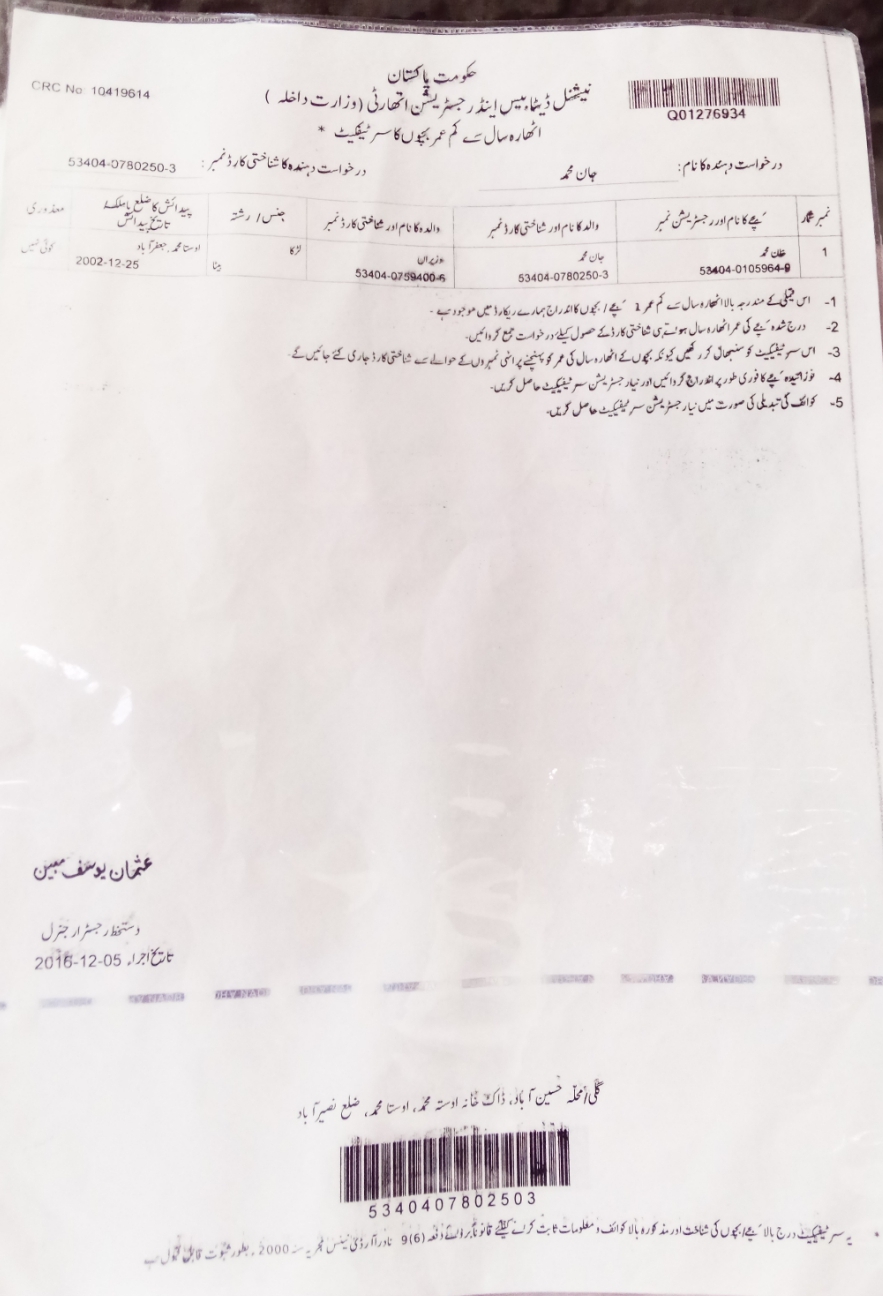 حکومت پاکستان
CRC No: 10419614
نیشنل ڈیٹابیس اینڈ رجسٹریشن اتھارٹی (وزارت داخلہ)
Q01276934
اٹھارہ سال سے کم عمر بچوں کا سرٹیفکیٹ *
درخواست دہندہ کا نام: جان محمد
درخواست دہندہ کا شناختی کارڈ نمبر: 53404-0780250-3
نمبر شمار بچے کا نام اور رجسٹریشن نمبر والد کا نام اور شناختی کارڈ نمبر والدہ کا نام اور شناختی کارڈ نمبر جنس / رشتہ پیدائش کا ضلع یا ملک تاریخ پیدائش معذوری
1 خان محمد جان محمد وزیران لڑکا اوستا محمد، جعفر آباد کوئی نہیں
53404-0105964-9 53404-0780250-3 53404-0759400-6 بیٹا 2002-12-25
1- اس فیملی کے مندرجہ بالا اٹھارہ سال سے کم عمر 1 بچے / بچوں کا اندراج ہمارے ریکارڈ میں موجود ہے۔
2- درج شدہ بچے کی عمر اٹھارہ سال ہوتے ہی شناختی کارڈ کے حصول کیلئے درخواست جمع کروائیں۔
3- اس سرٹیفیکیٹ کو سنبھال کر رکھیں کیونکہ بچوں کے اٹھارہ سال کی عمر کو پہنچنے پر انہی نمبروں کے حوالے سے شناختی کارڈ جاری کئے جائیں گے۔
4- نوزائیدہ بچے کا فوری طور پر اندراج کروائیں اور نیا رجسٹریشن سرٹیفیکیٹ حاصل کریں۔
5- کوائف کی تبدیلی کی صورت میں نیا رجسٹریشن سرٹیفیکیٹ حاصل کریں۔
عثمان یوسف مبین
دستخط رجسٹرار جنرل
تاریخ اجراء 2016-12-05
گلی/محلہ حسین آباد، ڈاک خانہ اوستہ محمد، اوستا محمد، ضلع نصیر آباد
5340407802503
* یہ سرٹیفیکیٹ درج بالا بچے/بچوں کی شناخت اور مذکورہ بالا کوائف و معلومات ثابت کرنے کیلئے قانوناً بروئے دفعہ (6)9 نادرا آرڈی نینس مجریہ سنہ 2000 ، بطور ثبوت قابل قبول ہے